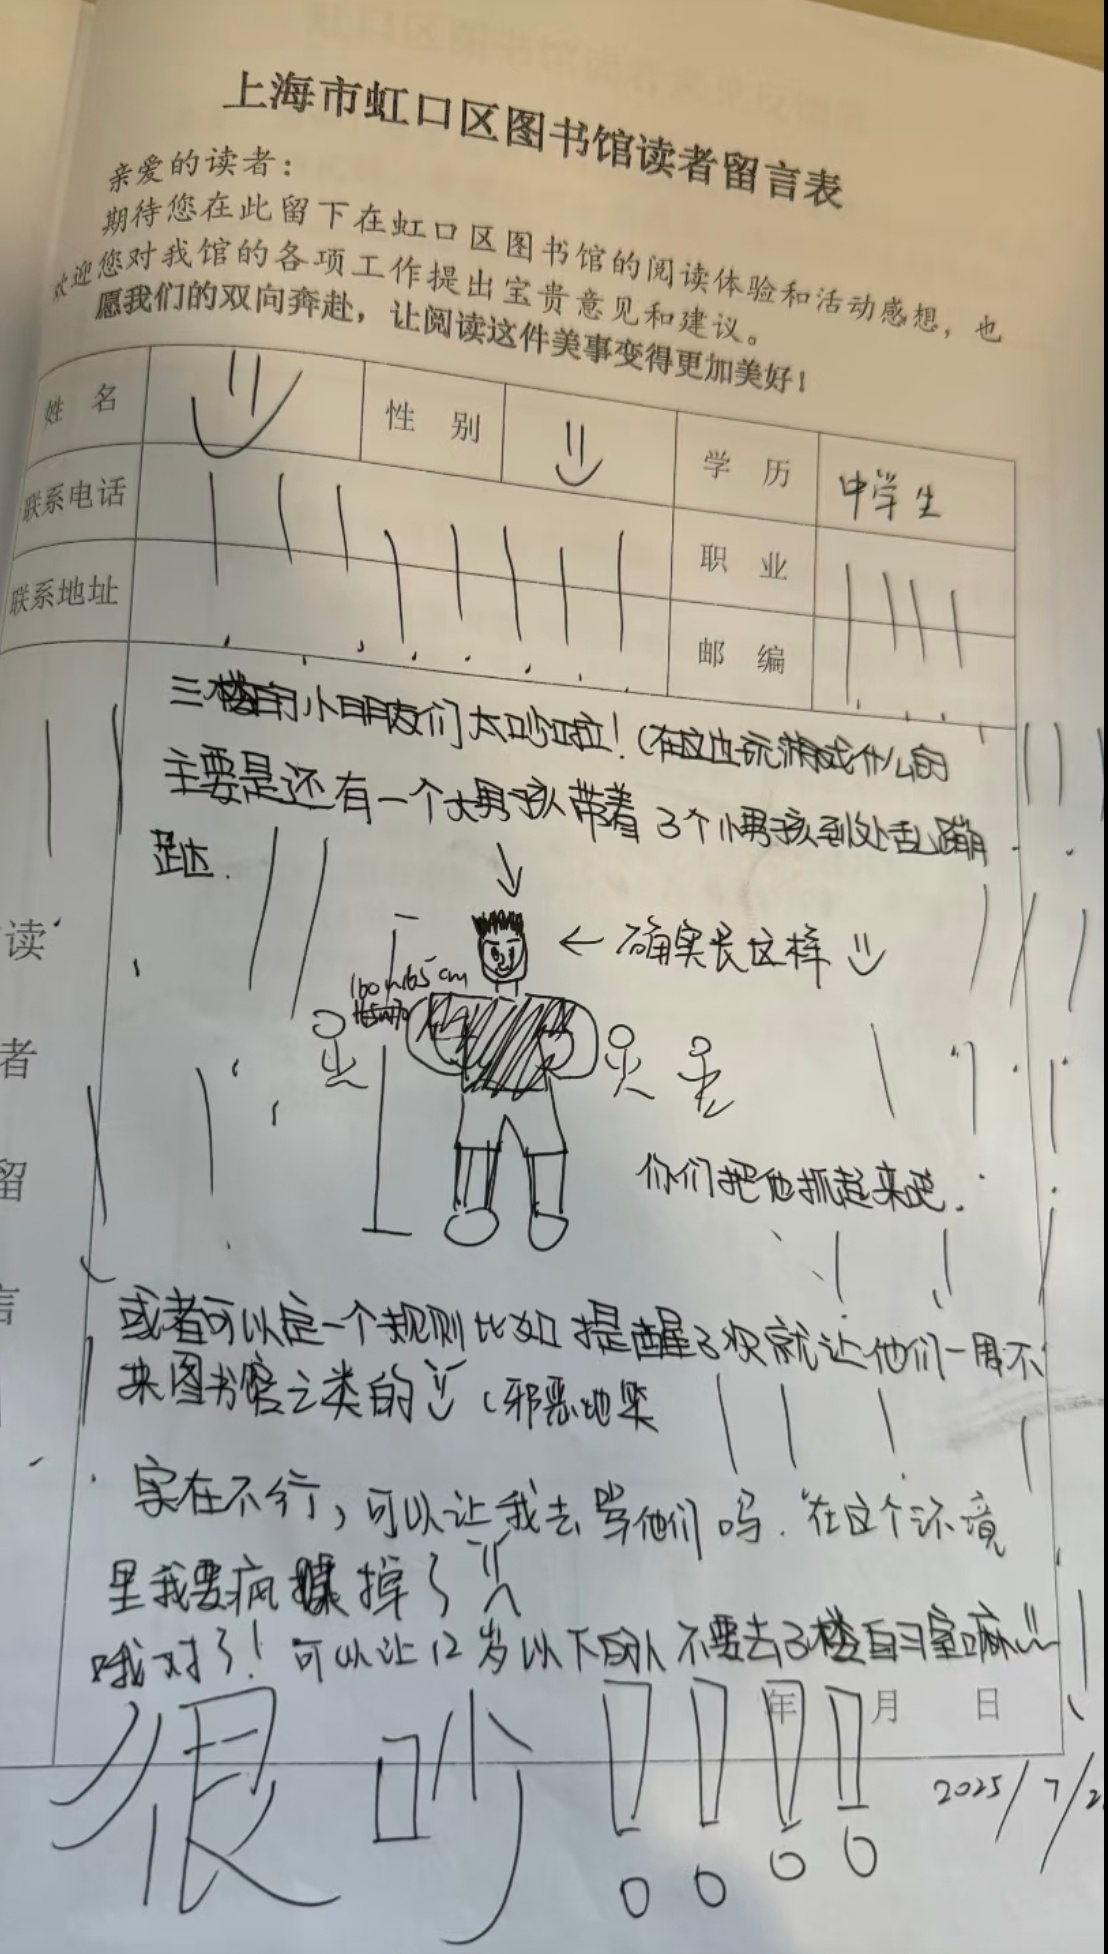 上海市虹口区图书馆读者留言表
亲爱的读者：
期待您在此留下在虹口区图书馆的阅读体验和活动感想，也
欢迎您对我馆的各项工作提出宝贵意见和建议。
愿我们的双向奔赴，让阅读这件美事变得更加美好！
姓 名
性 别
学 历 中学生
联系电话
职 业
联系地址
邮 编
三楼的小朋友们太吵啦！（在这边玩游戏什么的
主要是还有一个大男孩带着3个小男孩到处乱蹦
跶.
← 确实长这样
160~165cm
你们把他抓起来吧.
读
者
留
言
或者可以定一个规则比如提醒3次就让他们一周不
来图书馆之类的（邪恶地笑
实在不行，可以让我去骂他们吗.在这个环境
里我要疯掉了
哦对了！可以让12岁以下的人不要去3楼自习室嘛
年 月 日
很吵！！！！
2025/7/2